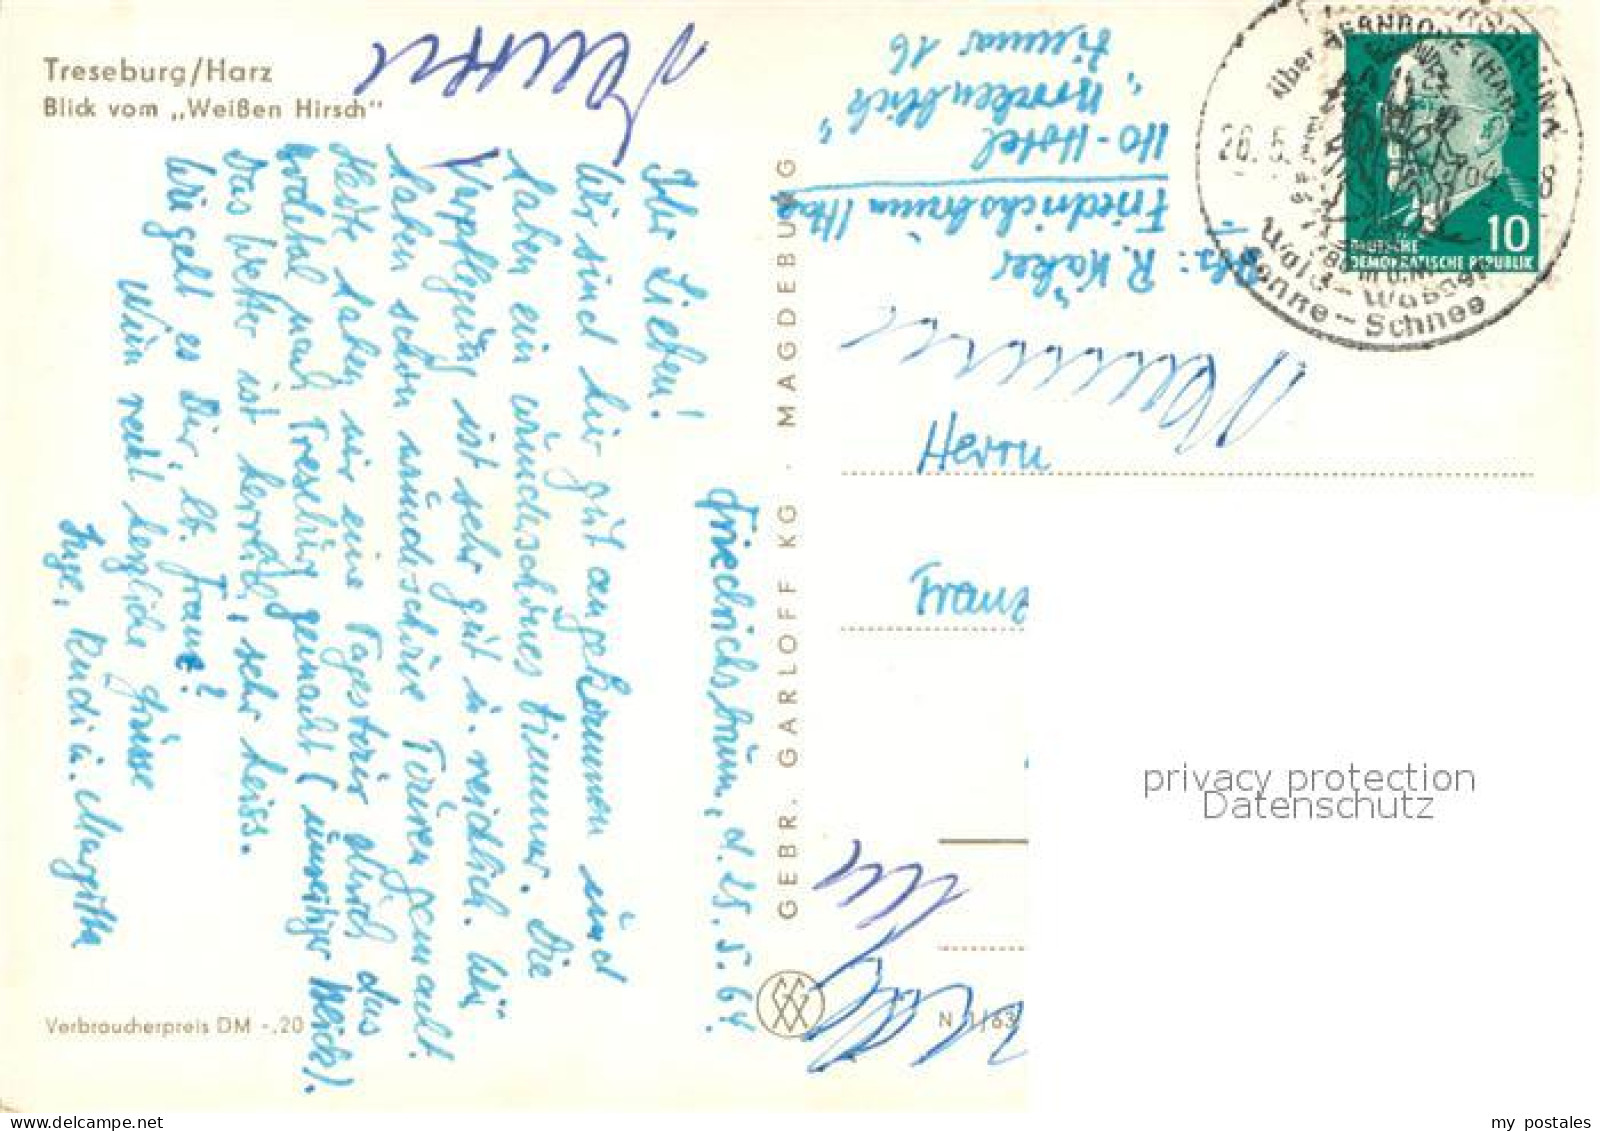 Treseburg/Harz
Blick vom „Weißen Hirsch"
Friedrichsbrunn, d. 25. 5. 64.
Ihr Lieben!
Wir sind hier gut angekommen und
haben ein wunderschönes Zimmer. Die
Verpflegung ist sehr gut u. reichlich. Wir
haben schon wunderschöne Touren gemacht.
Heute haben wir eine Tagestour durch das
Bodetal nach Treseburg gemacht (
Das Wetter ist herrlich, sehr heiss.
Wie geht es Dir, lb. Franz?
Nun recht herzliche Grüsse
Inge, Rudi u. Margitta
Verbraucherpreis DM -.20
GEBR. GARLOFF KG . MAGDEBURG
N 1/63
Abs: R. Käker
Friedrichsbrunn/Harz
HO-Hotel
„Brockenblick"
Zimmer 16
Herrn
Franz
über BERNRODE (HARZ)
26.5. 64 - 8
Wald - Wasser
Sonne - Schnee
10
DEUTSCHE
DEMOKRATISCHE REPUBLIK
privacy protection
Datenschutz
my postales